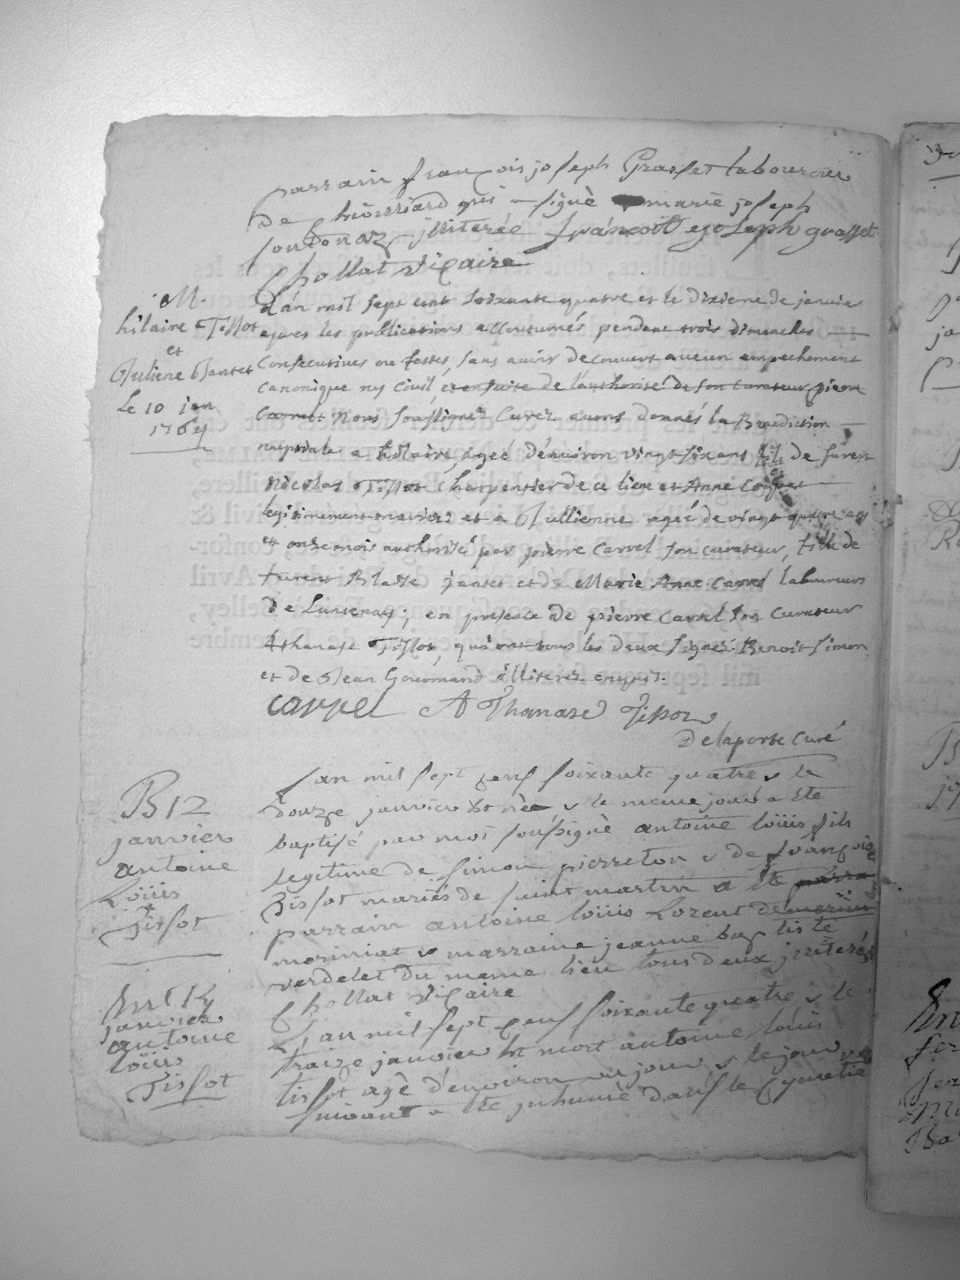 parrain françois joseph Grasset laboureur
de qui a signé marie joseph
illiterée françois ejoseph grasset
Chollat vicaire
M.
hilaire Tissot
et
Juliene Jantet
Le 10 jan
1764
L'an mil sept cent soixante quatre et le dixieme de janvier
apres les publications accoutumés pendant trois dimanches
Consecutives ou festes, sans avoir decouvert aucun empechement
Canonique ny Civil, et ensuite de l'authorité de son curateur pierre
Carrel Nous soussignez Curez avons donnés la Benediction
nuptiale a hilaire, agée d'environ vingt six ans fils de
Nicolas Tissot Charpentier de ce lieu et Anne
legitimement mariez et a Jullienne ageé de vingt quatre ans
et onze mois authorisé par pierre Carrel son curateur, fille de
Blaise jantet et de Marie Anne Carrel laboureurs
de ; en presence de pierre Carrel son Curateur
Athanase Tissot, qui ont tous les deux signez Benoit simon
et de Jean Gourmand illiterez enquis.
Carrel A Thanase Tissot
Delaporte Curé
B 12
janvier
antoine
Loüis
Tissot
L'an mil sept cens soixante quatre & le
douze janvier est née & le meme jour a été
baptisé par moi soussigné antoine loüis fils
legitime de simon pierreton & de françoise
Tissot mariés de saint martin a été
parrain antoine loüis Lorent de
& marraine jeanne baptiste
verdelet du meme lieu tous deux jlliterés
Chollat vicaire
Ent 13
janvier
antoine
loüis
Tissot
L'an mil sept cens soixante quatre & le
traize janvier est mort antoine loüis
tissot agé d'environ un jour & le jour
suivant a été jnhumé dans le cymetie